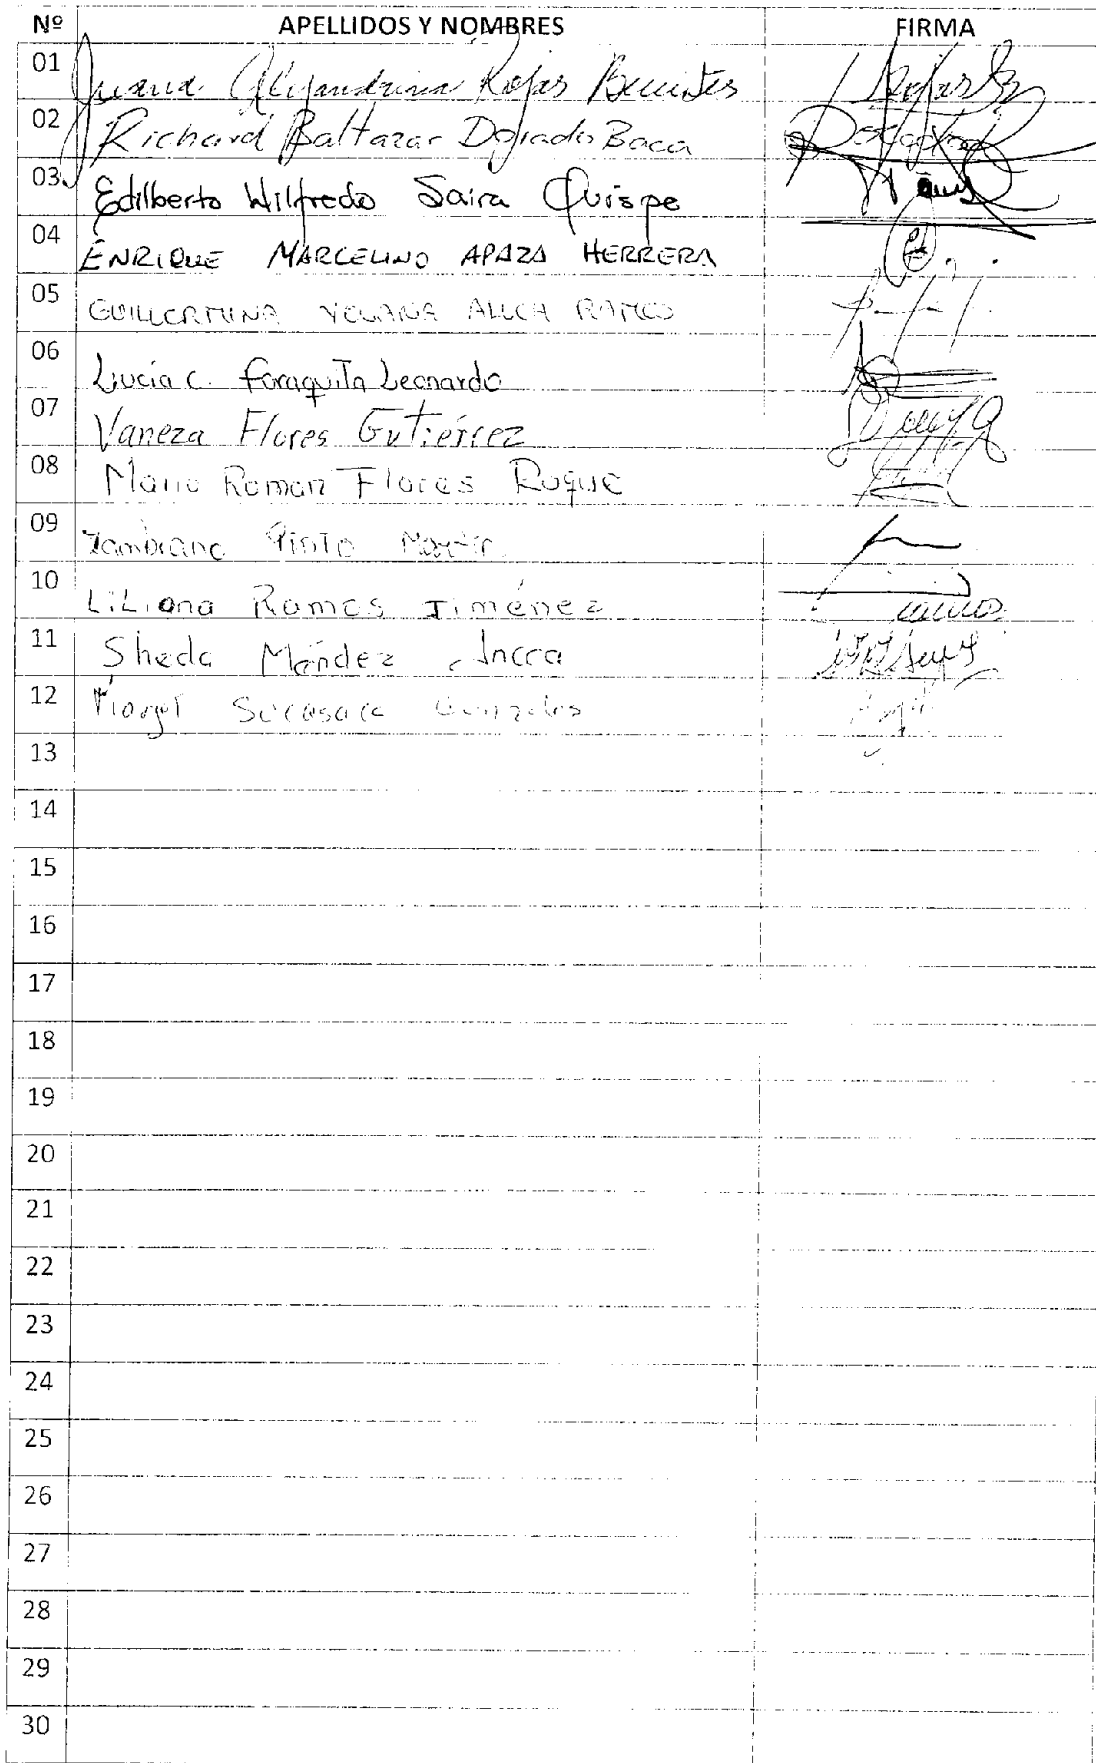 Nº APELLIDOS Y NOMBRES FIRMA
01 Juana Alejandrina Rojas Benites
02 Richard Baltazar Dorado Baca
03 Edilberto Wilfredo Saira Quispe
04 ENRIQUE MARCELINO APAZA HERRERA
05 GUILLERMINA ALLCA RAMOS
06 Lucia C. Leonardo
07 Vaneza Flores Gutiérrez
08 Mario Roman Flores Roque
09 Zambrano Pinto
10 LiLiana Ramos Jiménez
11 Sheda Méndez Incca
12 Sucasaca Gonzales
13
14
15
16
17
18
19
20
21
22
23
24
25
26
27
28
29
30